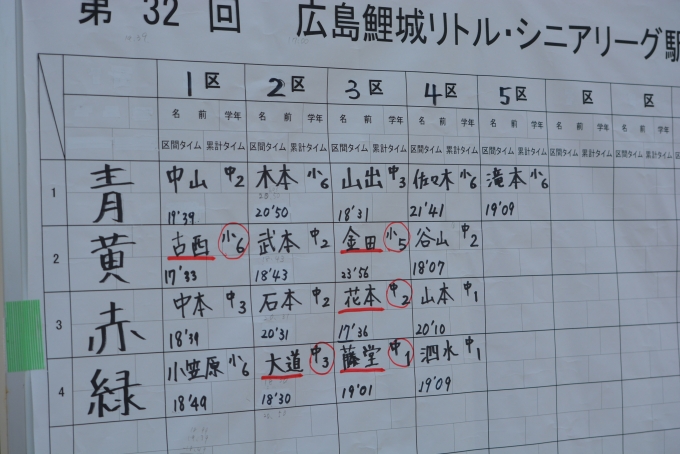 第 32 回 広島鯉城リトル・シニアリーグ駅
1区 2区 3区 4区 5区 区 区
名 前 学年 名 前 学年 名 前 学年 名 前 学年 名 前 学年 名 前 学年 名 前
区間タイム 累計タイム 区間タイム 累計タイム 区間タイム 累計タイム 区間タイム 累計タイム 区間タイム 累計タイム 区間タイム 累計タイム 区間タイム
1 青 中山 中2 木本 小6 山出 中3 佐々木 小6 滝本 小6
19'39 20'50 18'31 21'41 19'09
2 黄 古西 小6 武本 中2 金田 小5 谷山 中2
17'33 18'43 23'56 18'07
3 赤 中本 中3 石本 中2 花本 中2 山本 中1
18'39 20'31 17'36 20'10
4 緑 小笠原 小6 大道 中3 藤堂 中1 泗水 中1
18'49 18'30 19'01 19'09